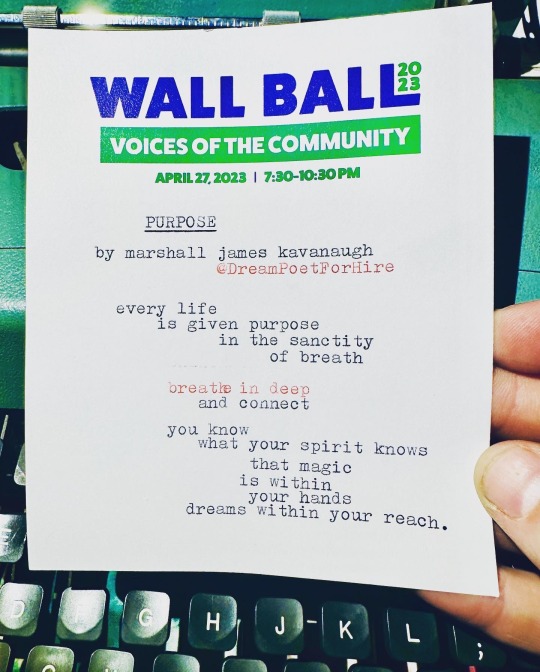 WALL BALL 2023
VOICES OF THE COMMUNITY
APRIL 27, 2023 | 7:30-10:30 PM
PURPOSE
by marshall james kavanaugh
@DreamPoetForHire
every life
is given purpose
in the sanctity
of breath
breathe in deep
and connect
you know
what your spirit knows
that magic
is within
your hands
dreams within your reach.
E
D F G H J K L ;